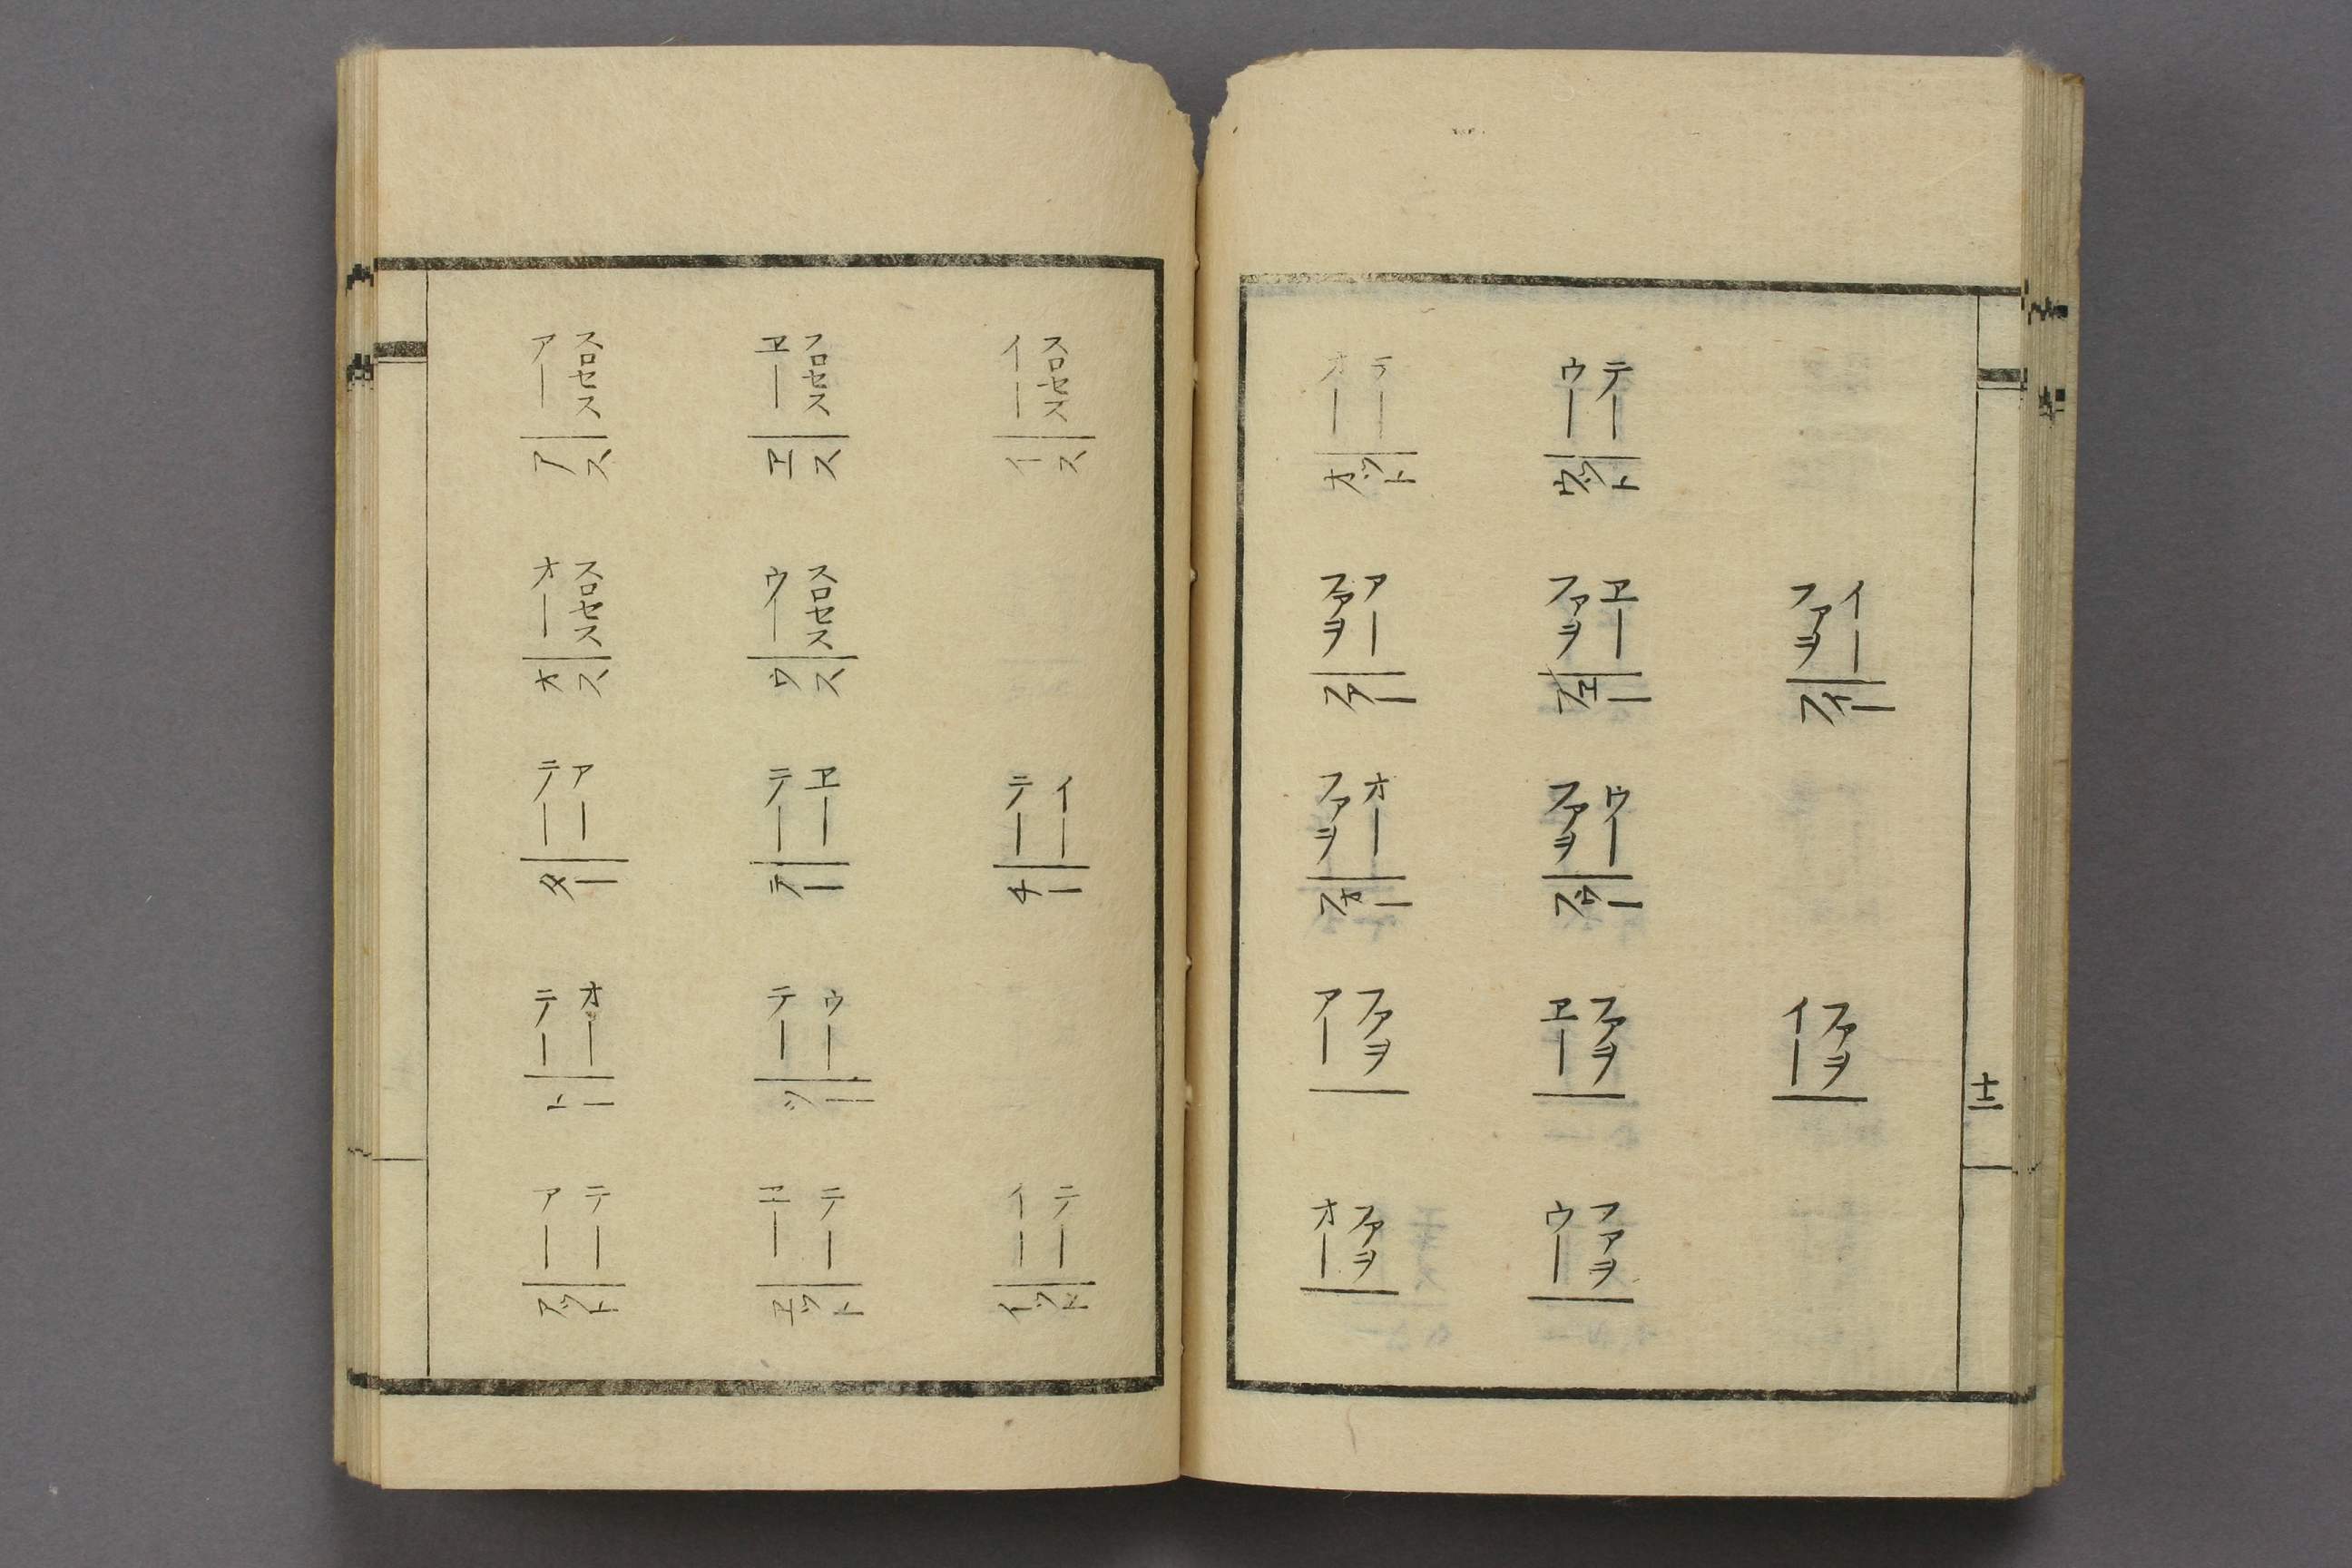 アー
スロセス
アス
ヱー
スロセス
ヱス
イー
スロセス
イス
オー
スロセス
オス
ウー
スロセス
ウス
テー
アー
ター
テー
ヱー
テー
テー
イー
チー
テー
オー
トー
テー
ウー
ツー
アー
テー
アット
ヱー
テー
ヱット
イー
テー
イット
オー
テー
オット
ウー
テー
ウット
ファヲ
アー
ファー
ファヲ
ヱー
フヱー
ファヲ
イー
フイー
ファヲ
オー
フオー
ファヲ
ウー
フウー
アー
ファヲ
ヱー
ファヲ
イー
ファヲ
オー
ファヲ
ウー
ファヲ
十二